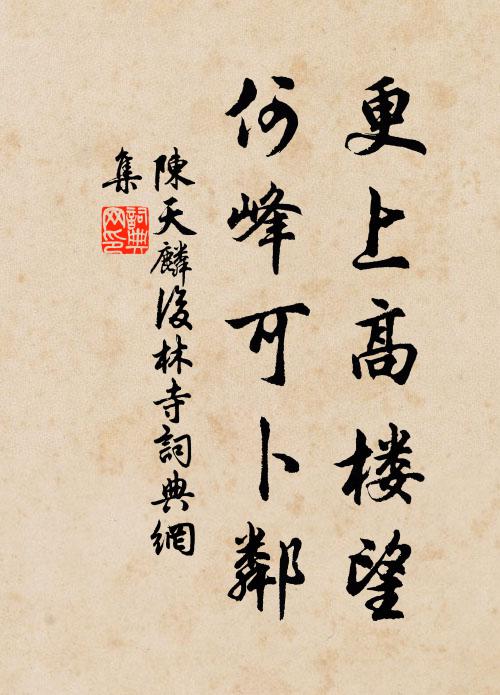 更上高楼望
何峰可卜鄰
陳天麟後林寺詞典網
集
詞典
网印